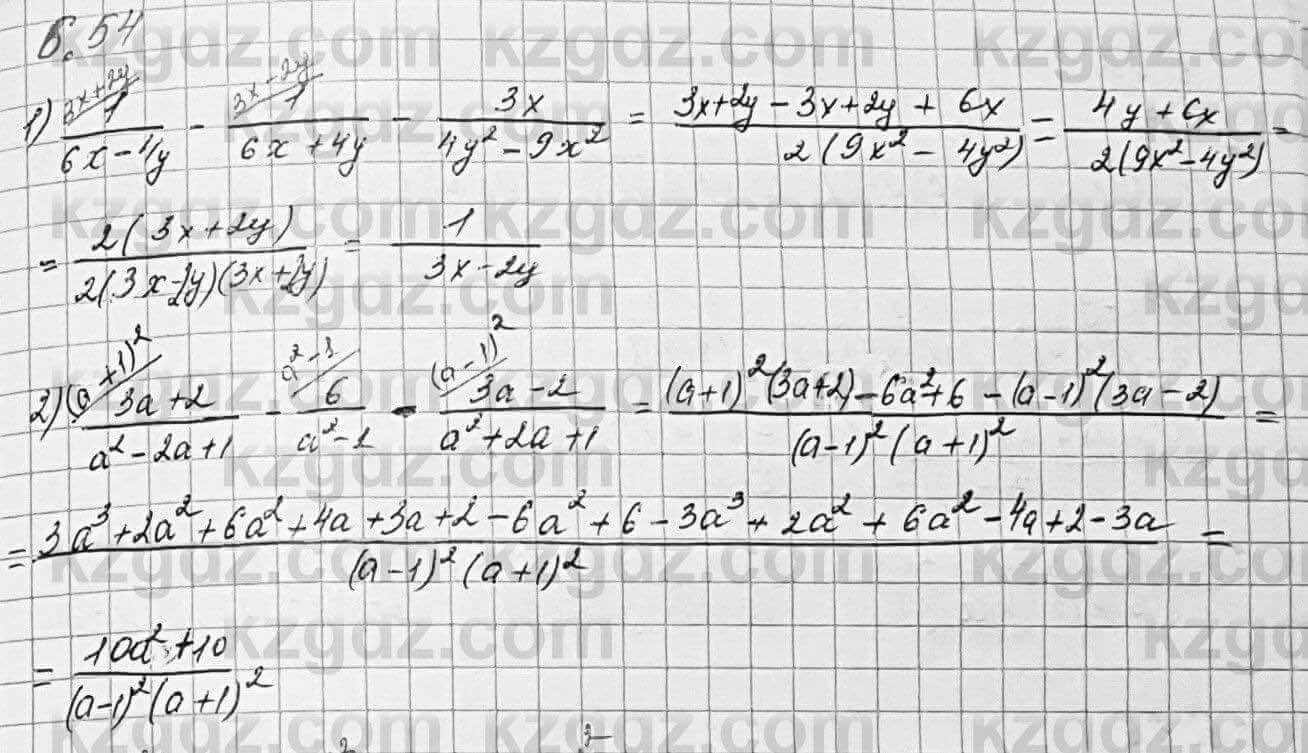 Б.54
1) 3x+2y/ 1/(6x-4y) - 3x-2y/ 1/(6x+4y) - 3x/(4y²-9x²) = (3x+2y-3x+2y+6x)/(2(9x²-4y²)) = (4y+6x)/(2(9x²-4y²)) =
= 2(3x+2y)/(2(3x-2y)(3x+2y)) = 1/(3x-2y)
2) (a+1)²/ (3a+2)/(a²-2a+1) - a²-1/ 6/(a²-1) - (a-1)²/ (3a-2)/(a²+2a+1) = ((a+1)²(3a+2)-6a²+6-(a-1)²(3a-2))/((a-1)²(a+1)²) =
= (3a³+2a²+6a²+4a+3a+2-6a²+6-3a³+2a²+6a²-4a+2-3a)/((a-1)²(a+1)²) =
= (10a²+10)/((a-1)²(a+1)²)
kzgdz.com